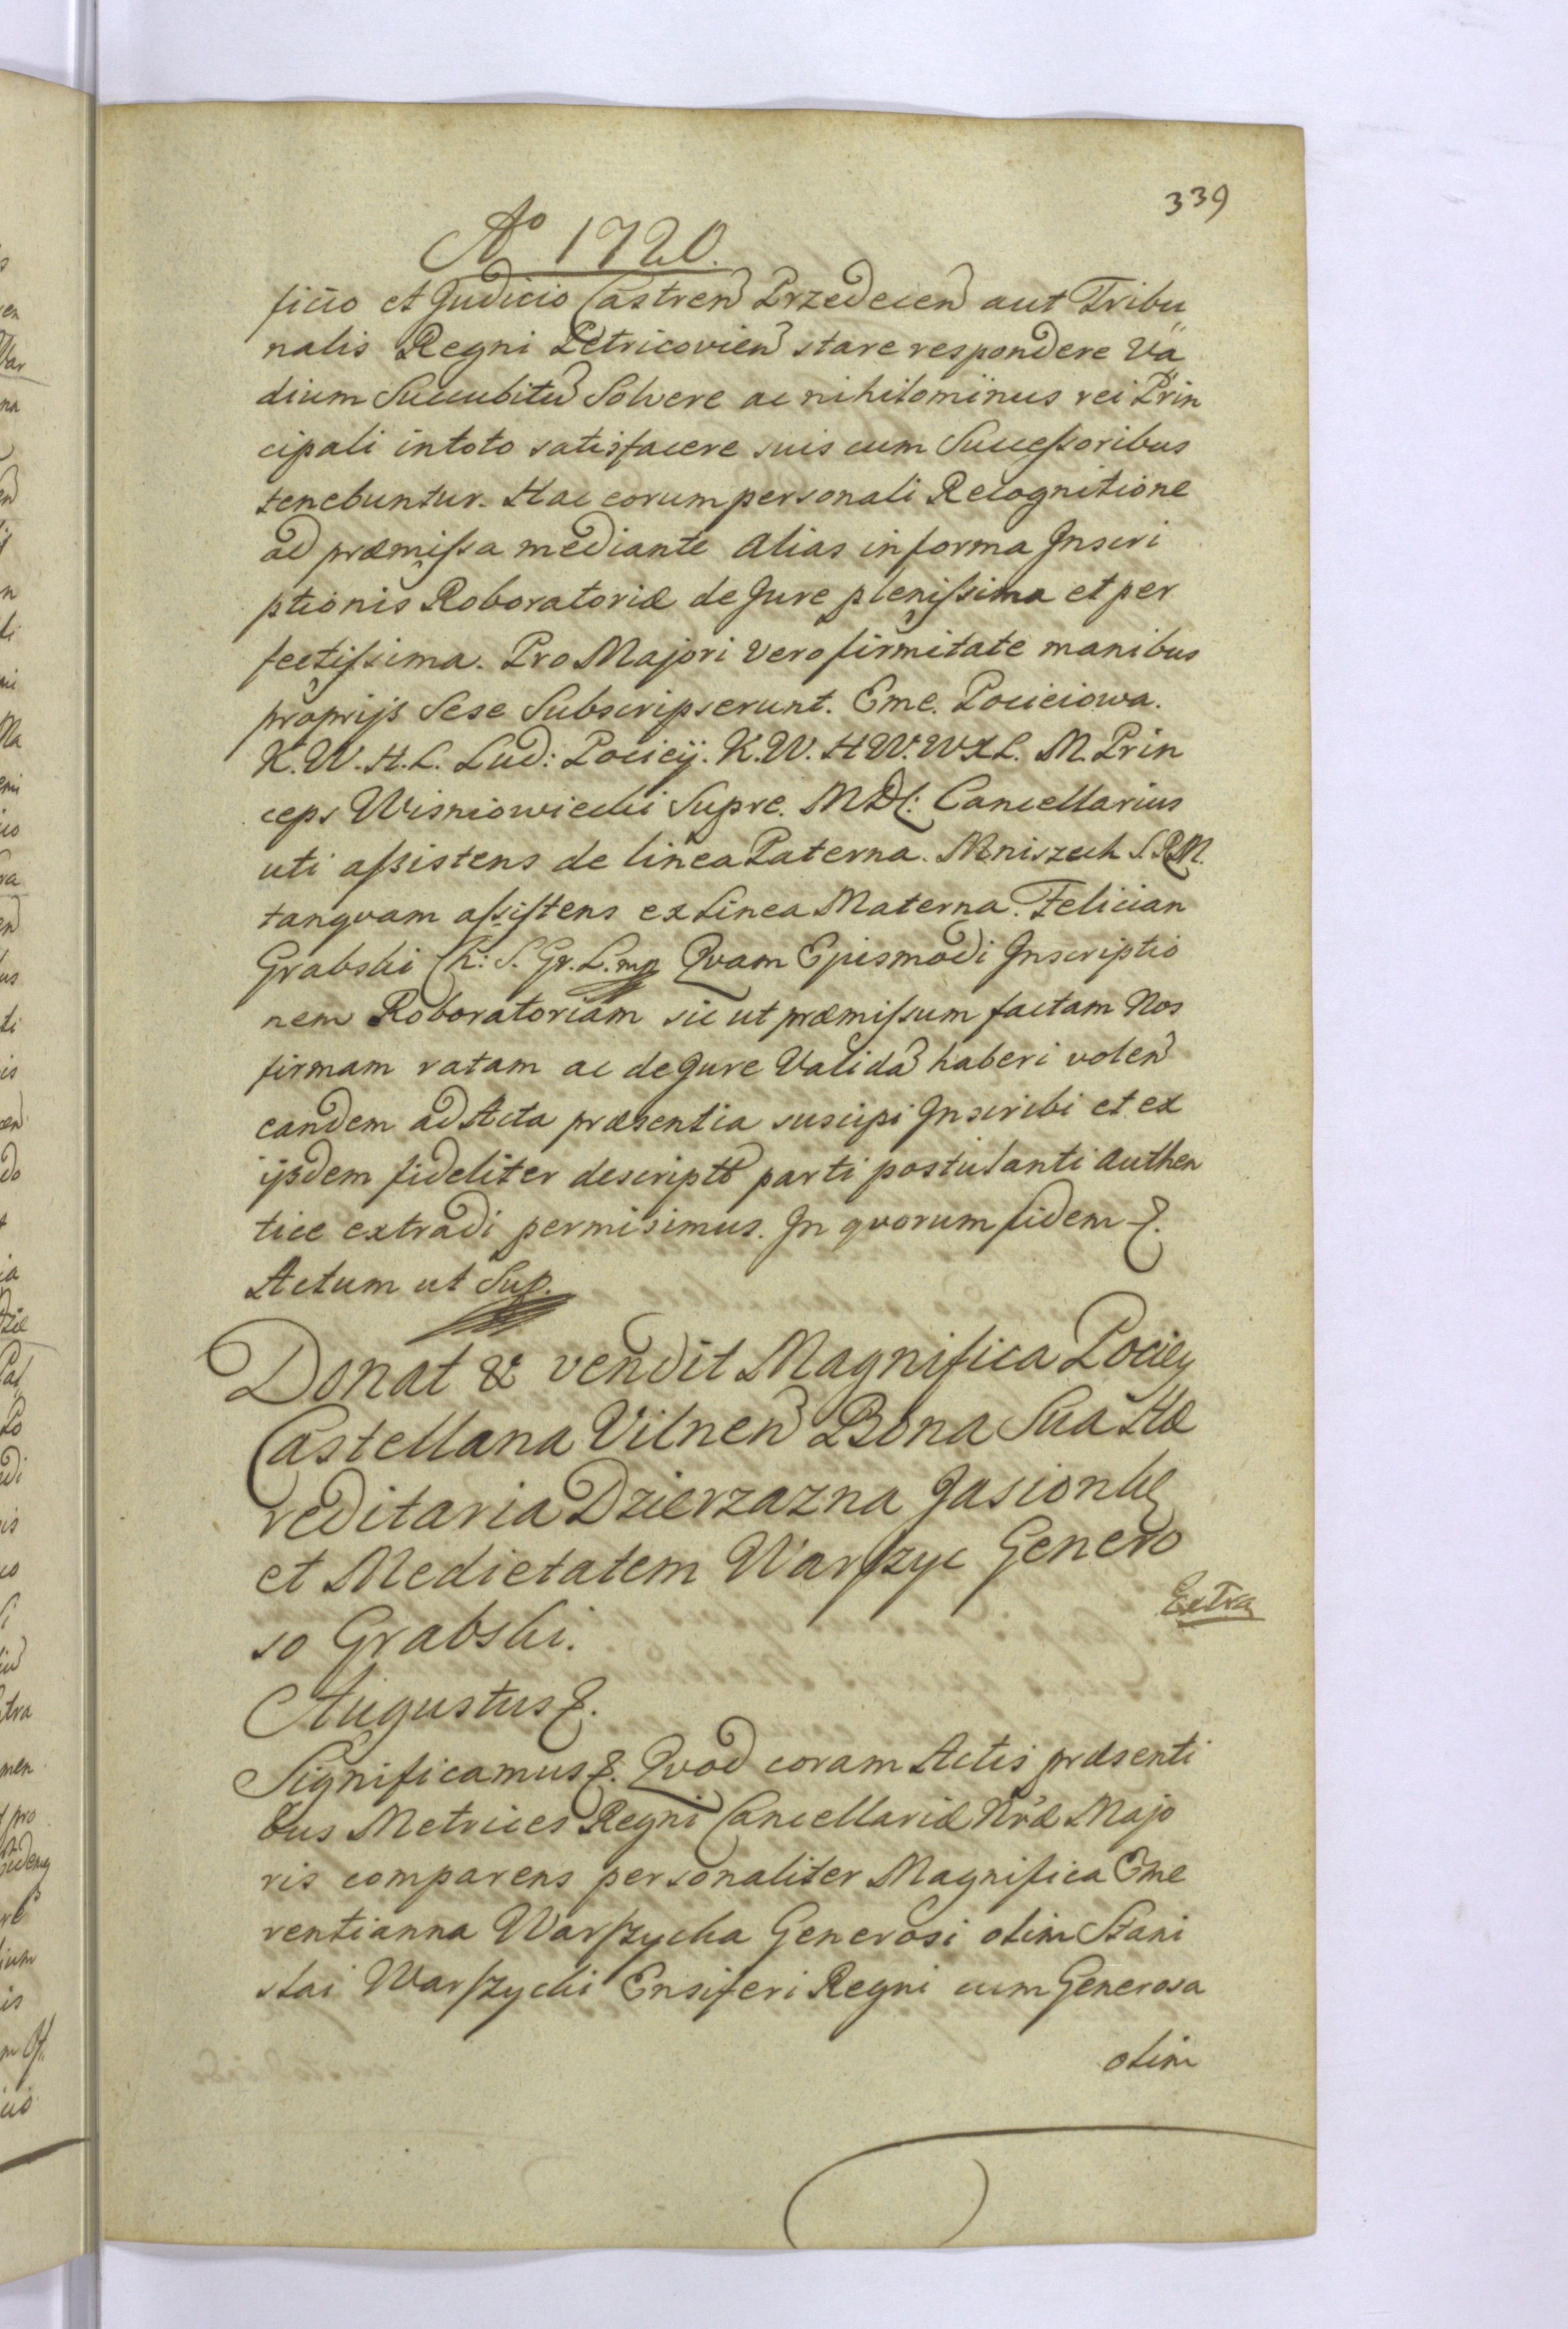 339
Ao 1720.
ficio et Judicio Castren Przedecen aut Tribu
nalis Regni Petricovien stare respondere Va
dium Succubitu Solvere ac nihilominus rei Prin
cipali in toto satisfacere suis cum Succeſsoribus
tenebuntur. Hac eorum personali Recognitione
ad præmiſsa mediante alias in forma Inscri
ptionis Roboratoriæ de Jure pleniſsima et per
fectiſsima. Pro Majori vero firmitate manibus
proprijs Sese Subscripserunt. Eme. Pocieiowa.
K.W.H.L. Lud: Pociey. K.W. H W. W X L. M. Prin
ceps Wisniowiecki Supre. M D L: Cancellarius
uti aſsistens de linea Paterna. Mniszech S.P.M.
tanqvam aſsiſtens ex Linea Materna. Felician
Grabski Ch: S. Gr. L. mp Qvam Ejusmodi Inscriptio
nem Roboratoriam sic ut præmiſsum factam Nos
firmam ratam ac de Jure Valida haberi volen
eandem ad Acta præsentia suscipi Inscribi et ex
ijsdem fideliter descriptt parti postulanti Authen
tice extradi permisimus. In qvorum fidem &.
Actum ut Sup.
Donat & vendit Magnifica Pociey
Castellana Vilnen Bona Sua Hæ
reditaria Dzierzazna Jasionke
et Medietatem Warſzyc Genero
so Grabski.
Extra
Augustus &.
Significamus &. Qvod coram Actis præsenti
bus Metrices Regni Cancellariæ Nræ Majo
ris comparens personaliter Magnifica Eme
rentianna Warſzycka Generosi olim Stani
slai Warſzycki Ensiferi Regni cum Generosa
olim